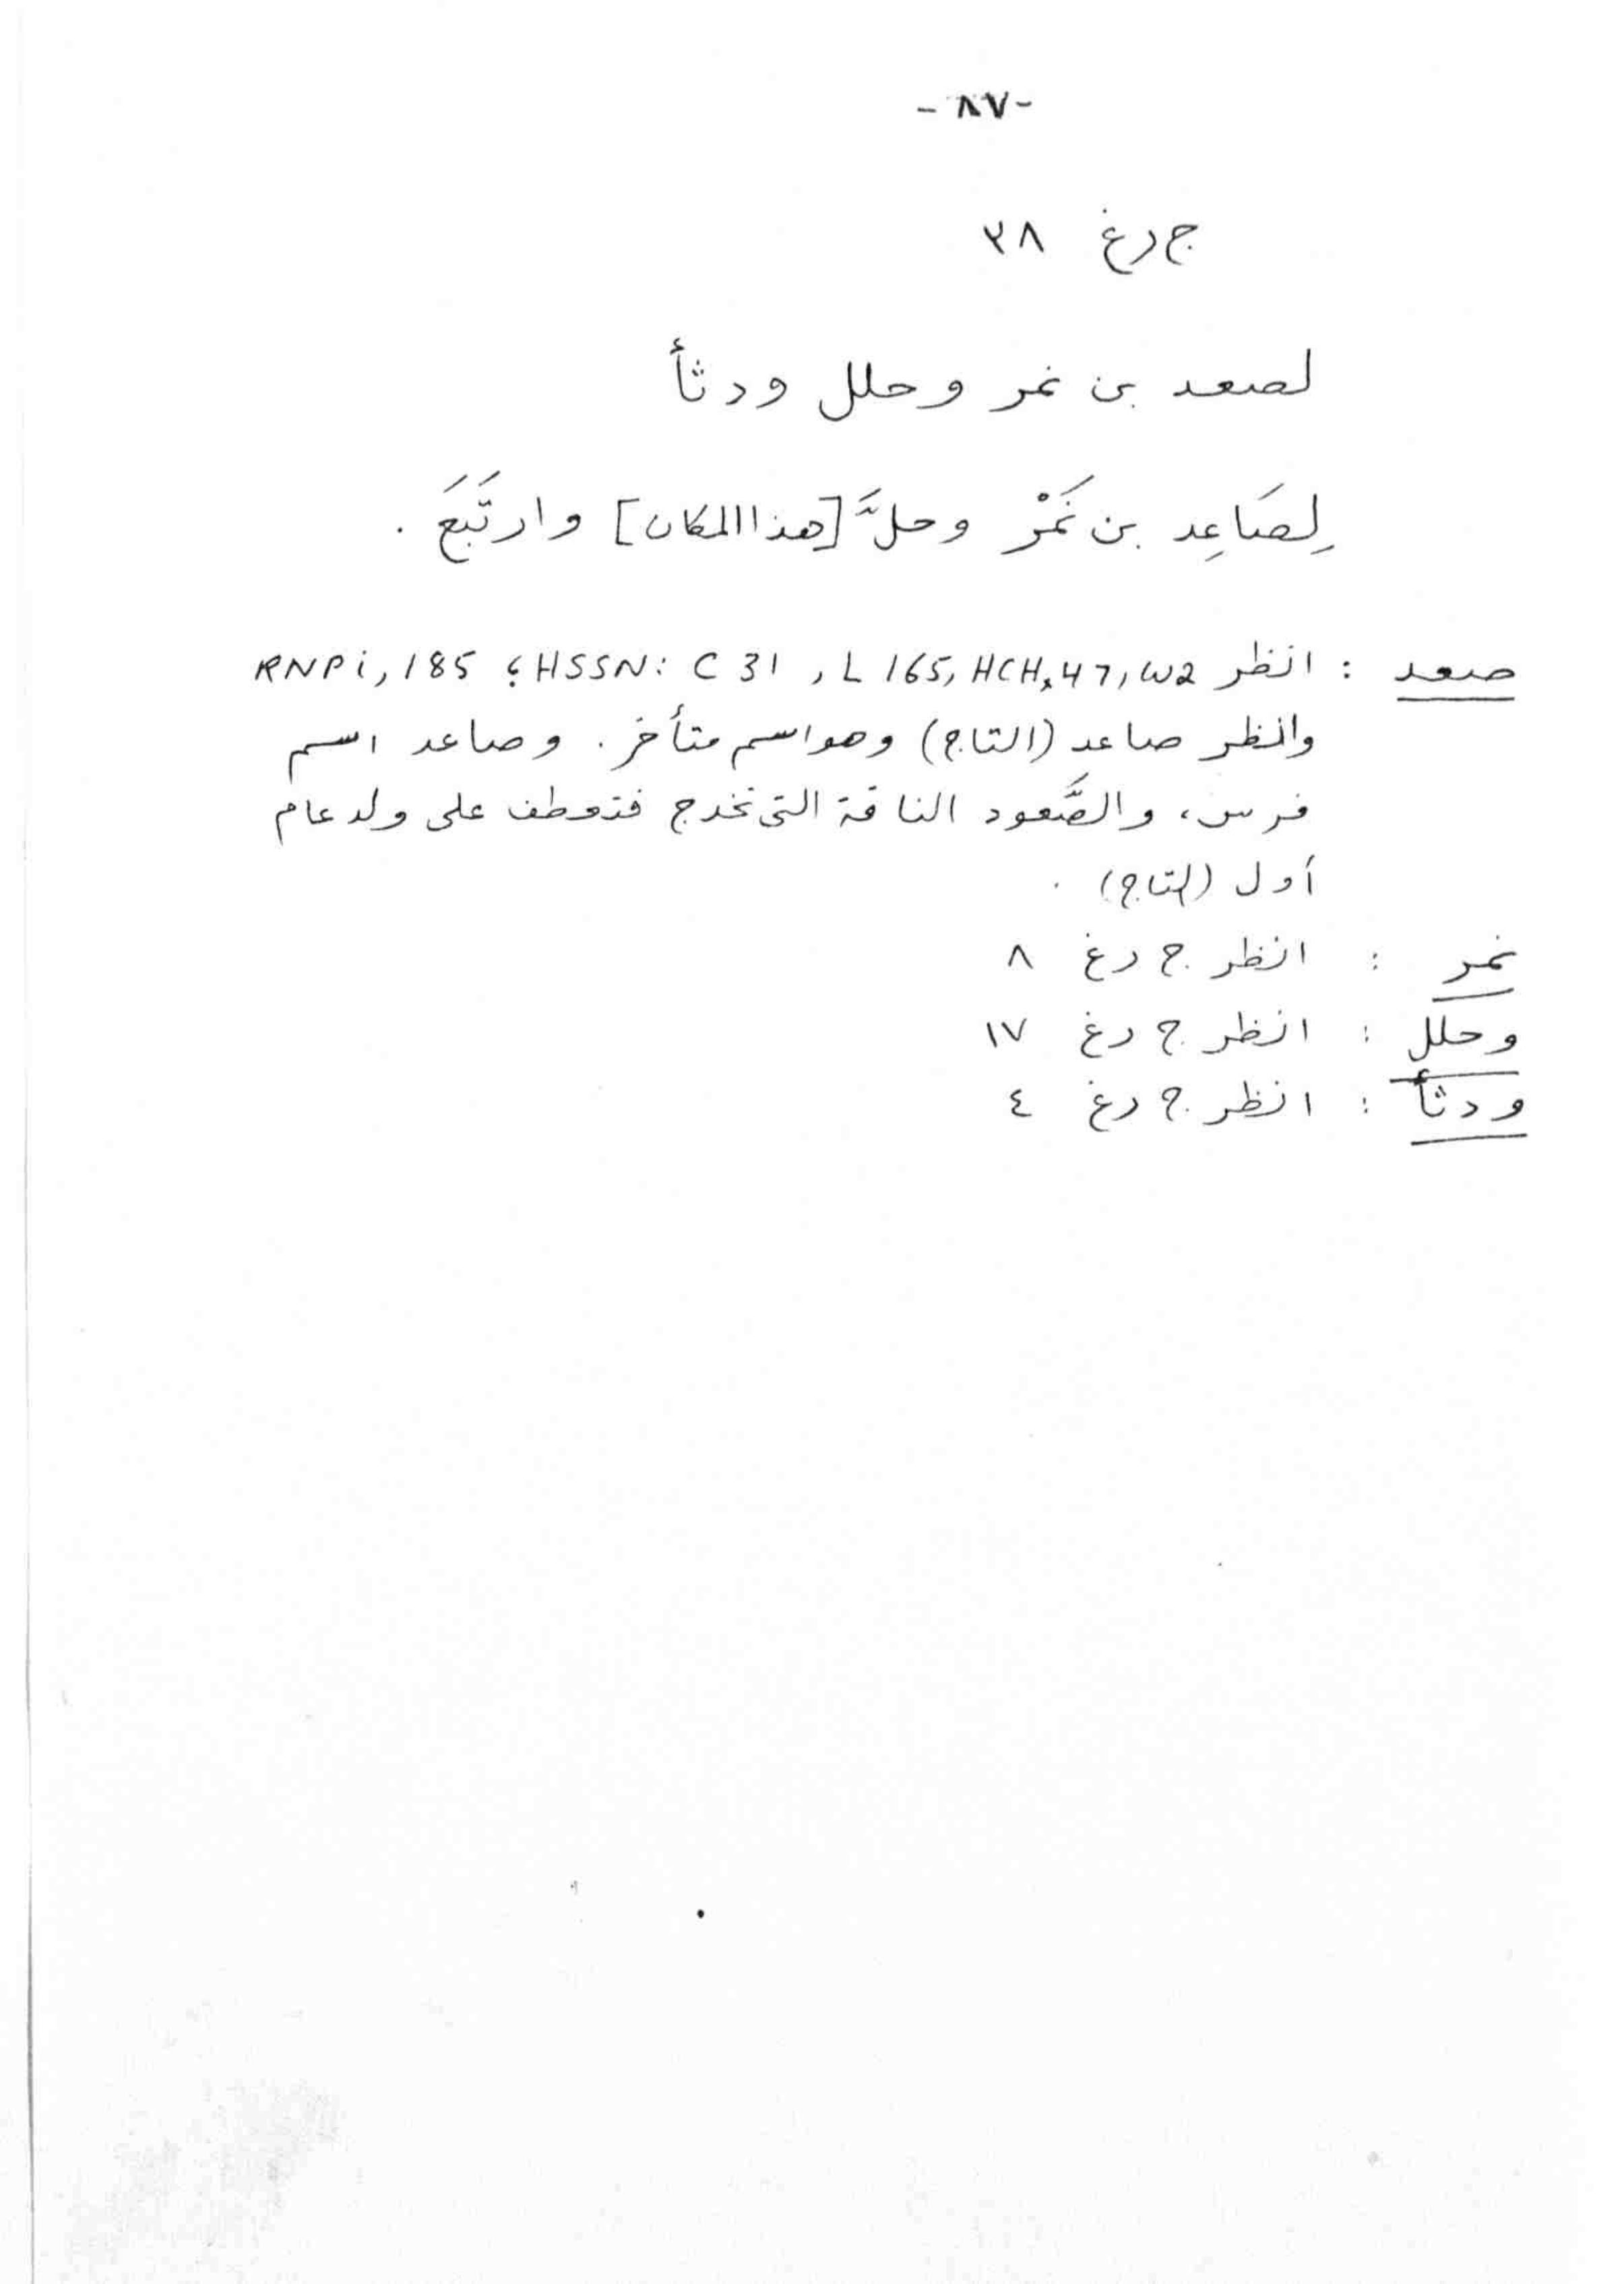 - ٨٧ -
ج رغ ٣٨
لصعد بن نمر وحلل ودثأ
لِصَاعِد بن نَمْر وحلَّ [هذا المكان] وارتَبَعَ .
صعد : انظر RNP i, 185 ؛ HSSN: C 31 , L 165, HCH, 47, W2
وانظر صاعد (التاج) وهو اسم متأخر . وصاعد اسم
فرس ، والصَّعود الناقة التي تخدج فتعطف على ولد عام
أول (التاج) .
نمر : انظر ج رغ ٨
وحلل : انظر ج رغ ١٧
ودثأ : انظر ج رغ ٤